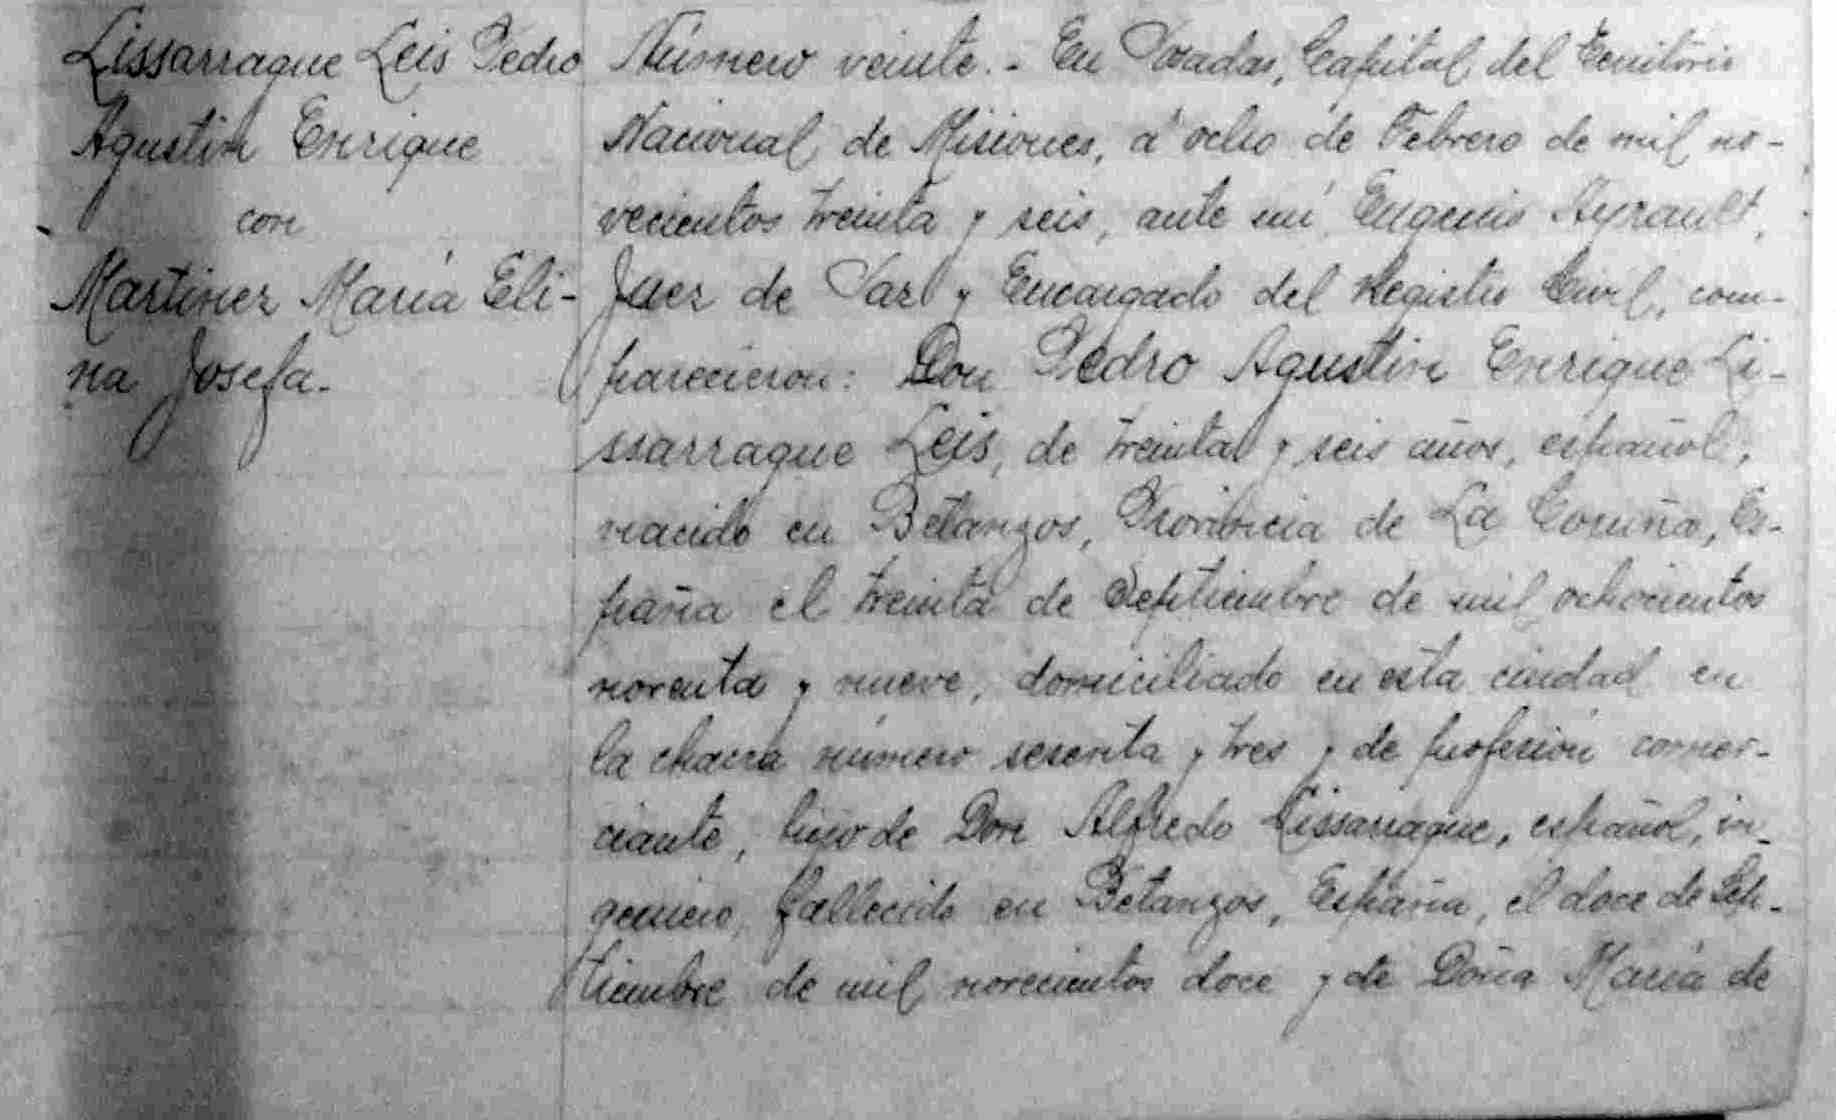 Lissarrague Leis Pedro
Agustin Enrique
con
Martinez María Eli-
na Josefa.
Número veinte.- En Posadas, Capital del Territorio
Nacional de Misiones, á ocho de Febrero de mil no-
vecientos treinta y seis, ante mí, Eugenio Ayrault,
Juez de Paz y Encargado del Registro Civil, com-
parecieron: Don Pedro Agustin Enrique Li-
ssarrague Leis, de treinta y seis años, español,
nacido en Betanzos, Provincia de La Coruña, Es-
paña el treinta de Septiembre de mil ochocientos
noventa y nueve, domiciliado en esta ciudad en
la chacra número sesenta y tres y de profesión comer-
ciante, hijo de Don Alfredo Lissarrague, español, in-
geniero, fallecido en Betanzos, España, el doce de Sep-
tiembre de mil novecientos doce y de Doña María de